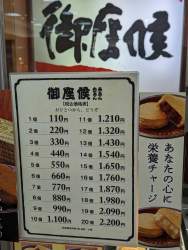 御座候
御座候
【税込価格表】
おひとつから、どうぞ
1個 110円 11個 1,210円
2個 220円 12個 1,320円
3個 330円 13個 1,430円
4個 440円 14個 1,540円
5個 550円 15個 1,650円
6個 660円 16個 1,760円
7個 770円 17個 1,870円
8個 880円 18個 1,980円
9個 990円 19個 2,090円
10個 1,100円 20個 2,200円
あなたの心に
栄養チャージ